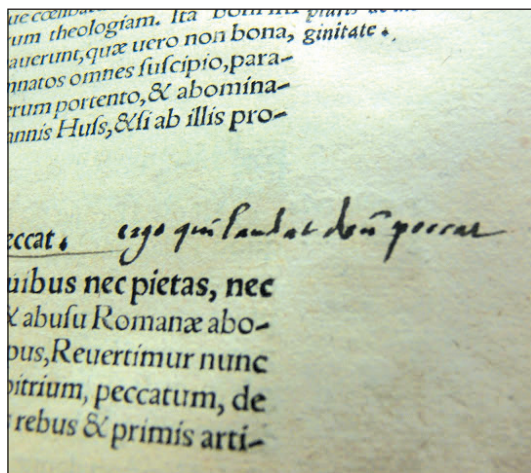 ue cœliba
um theologiam. Ita boni
auerunt, quæ uero non bona, ginitate.
nnatos omnes ſuſcipio, para-
erum portento, & abomina-
annis Huſs, & ſi ab illis pro-
eccat. ergo qui laudat deũ peccat
uibus nec pietas, nec
& abuſu Romanæ abo-
ous, Reuertimur nunc
bitrium, peccatum, de
rebus & primis arti-